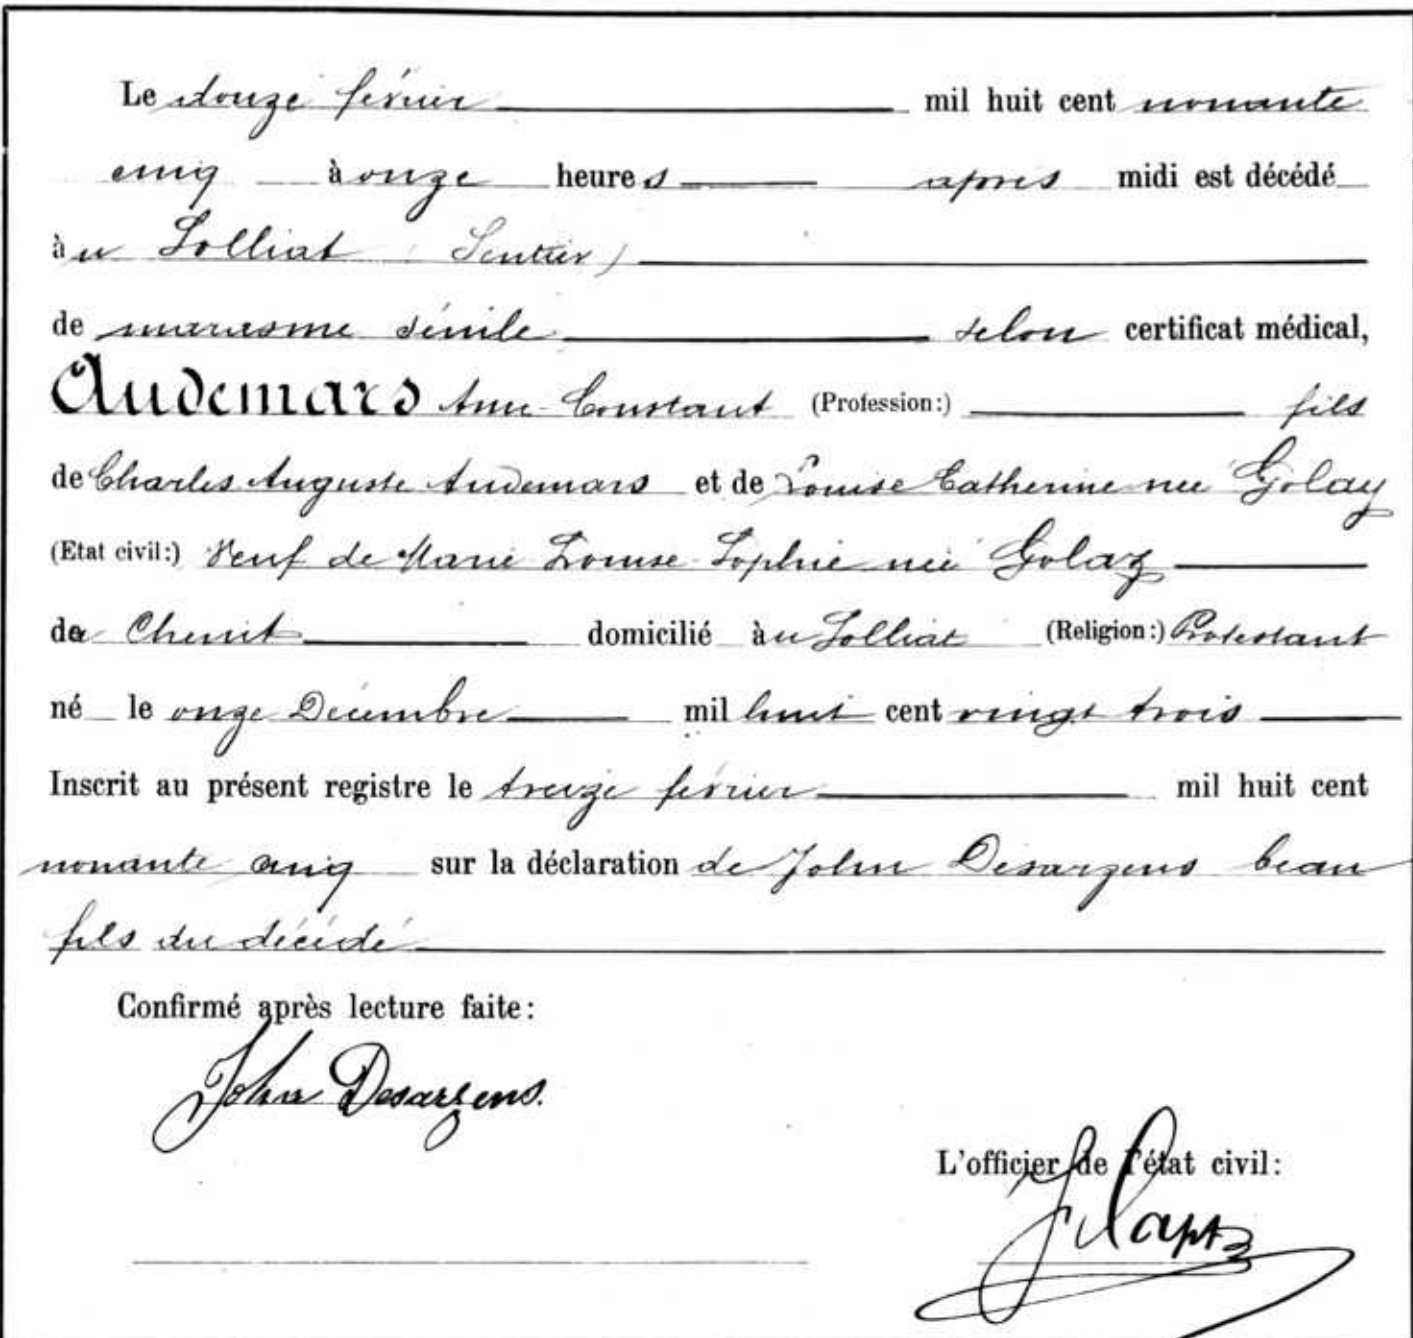 Le douze février mil huit cent nonante
cinq à onze heures après midi est décédé
à u Solliat (Sentier)
de marasme sénile selon certificat médical,
Audemars Ami-Constant (Profession:) fils
de Charles Auguste Audemars et de Louise Catherine née Golay
(Etat civil:) Veuf de Marie Louise-Sophie née Golaz
du Chenit domicilié au Solliat (Religion:) Protestant
né le onze Décembre mil huit cent vingt trois
Inscrit au présent registre le treize février mil huit cent
nonante cinq sur la déclaration de John Desarzens beau
fils du décédé
Confirmé après lecture faite:
John Desarzens.
L'officier de l'état civil: